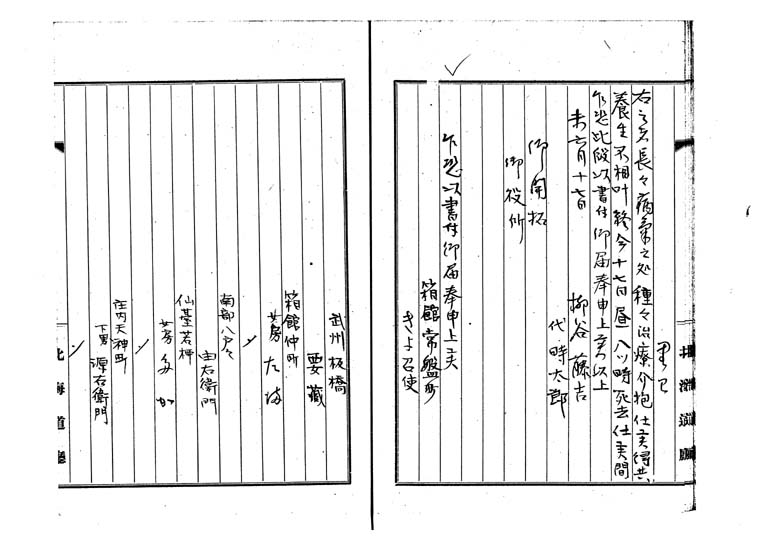 右之者長々病氣之処種々治療介抱仕候得共
養生不相叶終今十七日昼八ツ時死去仕候間
乍恐此段以書付御届奉申上候以上
未六月十七日
柳谷藤吉
代時太郎
御開拓
御役所
乍恐以書付御届奉申上候
箱館常盤町
きよ召使
北海道廳
武州板橋
要藏
箱館仲町
女房
南部八戸
由右衛門
仙臺若柳
女房
庄内天神町
下男 源右衛門
北海道廳